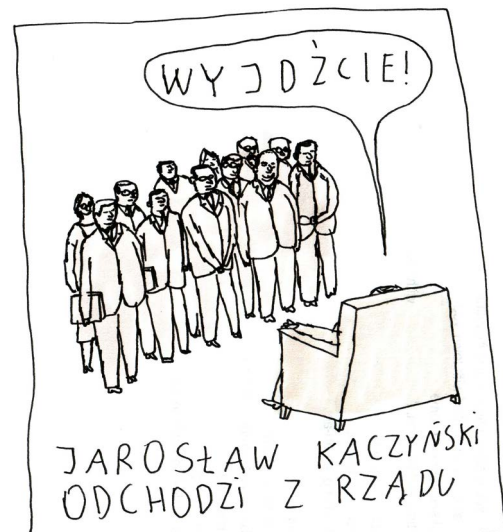 WYJDŹCIE!
JAROSŁAW KACZYŃSKI
ODCHODZI Z RZĄDU